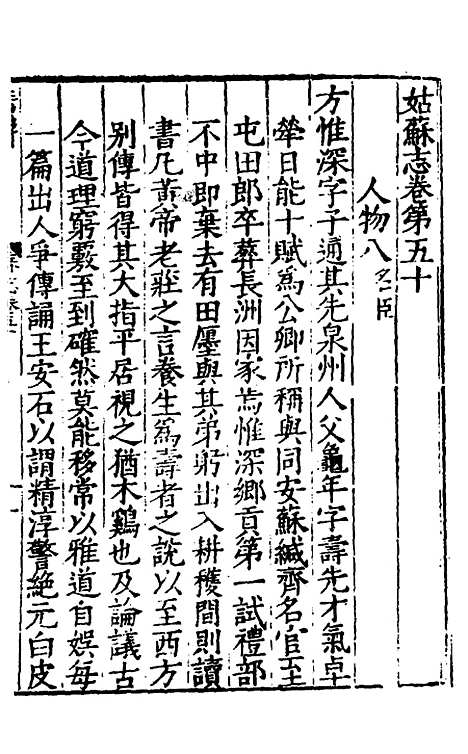 姑蘇志卷第五十
人物八名臣
方惟深字子通其先泉州人父龜年字壽先才氣卓
犖日能十賦為公卿所稱與同安蘇緘齊名官至
屯田郎卒葬長洲因家焉惟深鄉貢第一試禮部
不中即棄去有田廛與其弟躬出入耕穫間則讀
書凡黃帝老莊之言養生為壽者之說以至西方
别傳皆得其大指平居視之猶木鷄也及論議古
今道理窮覈至到確然莫能移常以雅道自娛每
一篇出人爭傳誦王安石以謂精淳警絶元白皮